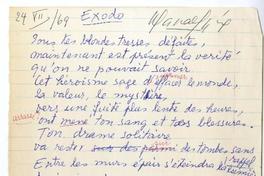 24 VII/69 Exodo
Sous tes blondes tresses défaites,
maintenant est présent la verité
qu'on ne pouvait savoir
Cet héroïsme sage d'effacer le monde,
la valeur, le mystère,
vers une fuite plus lente des heures,
ont même ton sang et tous blessures.
Ton drame solitaire
va rester sur des tombes sans
Entre les murs épais s'éteindra